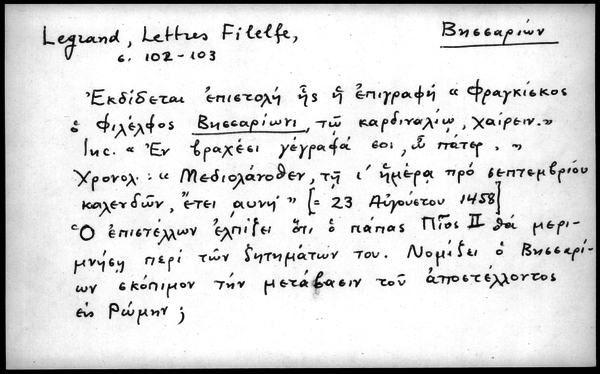 Legrand, Lettres Filelfe,
σ. 102-103
Βησσαρίων
Ἐκδίδεται ἐπιστολή ἧς ἡ ἐπιγραφή « Φραγκίσκος
ὁ Φιλέλφος Βησσαρίωνι, τῷ καρδιναλίῳ, χαίρειν. »
Inc. « Ἐν βραχέσι γέγραφά σοι, ὦ πάτερ. »
Χρονολ.: « Μεδιολάνοθεν, τῇ ι´ ἡμέρᾳ πρό σεπτεμβρίου
καλενδῶν, ἔτει ͵αυνη´ » [= 23 Αὐγούστου 1458]
Ὁ ἐπιστέλλων ἐλπίζει ὅτι ὁ πάπας Πῖος II θά μερι-
μνήσῃ περί τῶν ζητημάτων του. Νομίζει ὁ Βησσαρί-
ων σκόπιμον τήν μετάβασιν τοῦ ἀποστέλλοντος
εἰς Ρώμην ;